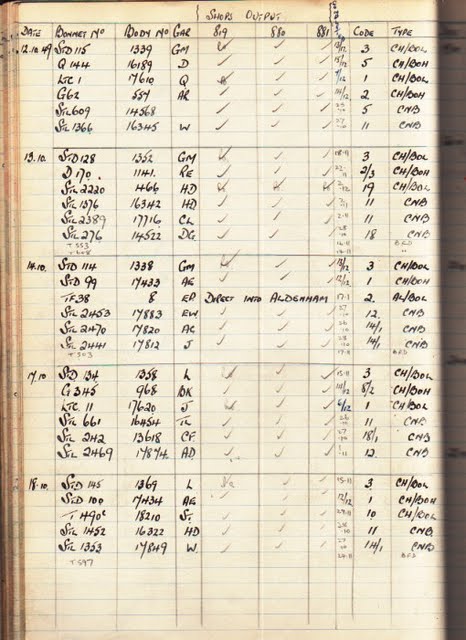 SHOPS OUTPUT.
DATE BONNET No BODY No GAR 819 880 881 CODE TYPE
12.10.49 STD 115 1339 GM 3 CH/BOL
Q 144 16189 D 5 CH/BOH
LTC 1 17610 Q 1 CH/BOL
G62 557 AR 14/12 2 CH/BOH
STL 609 14568 5 CNB
STL 1366 16345 W 11 CNB
13.10. STD 128 1352 GM 18-11 3 CH/BOL
D 170. 1141. RE 2/3 CH/BOH
STL 2220 466 HD 19 CH/BOL
STL 1376 16342 HD 11 CNB
STL 2389 17716 CL 2-11 11 CNB
STL 276 14522 DG 18 CNB
T 553 16-11 BFD
T 608 "
14.10. STD 114 1338 GM 3 CH/BOL
STD 99 17433 AE 1 CH/BOH
TF 38 8 EP DIRECT INTO ALDENHAM 17-1 2. AL/BOL
STL 2453 17883 EW 12. CNB
STL 2470 17820 AC 14/1 CNB
STL 2441 17812 J 14/1 CNB
T 503 17-11 BFD
17.10. STD 134 1358 L 15-11 3 CH/BOL
G 345 968 BK 8/2 CH/BOH
LTC 11 17620 J 1 CH/BOL
STL 661 16454 TL 11 CNB
STL 242 13618 CF 18/1 CNB
STL 2469 17874 AD 12. CNB
18.10. STD 145 1369 L 15-11 3 CH/BOL
STD 100 17434 AE 1 CH/BOH
T 490c 18210 ST. 10 CH/BOL
STL 1452 16322 HD 11 CNB
STL 1353 17849 W. 14/1 CNB
T 597 BFD